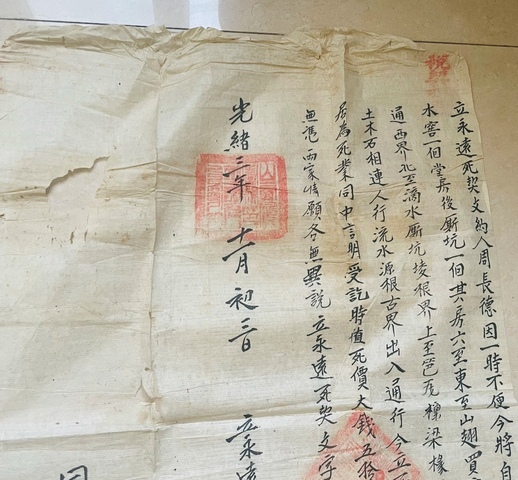 立永遠死契文約人周長德因一時不便今將自
水窖一個堂房後廁坑一個其房六至東至山翅買
通西界北至滴水廁坑堎根界上至笆瓦檁梁椽
土木石相連人行流水源根古界出入通行今立
居為死業同中言明受訖時值死價大錢五拾
無憑兩家情願各無異說立永遠死契文字
光緒三年十一月初三日
立永遠